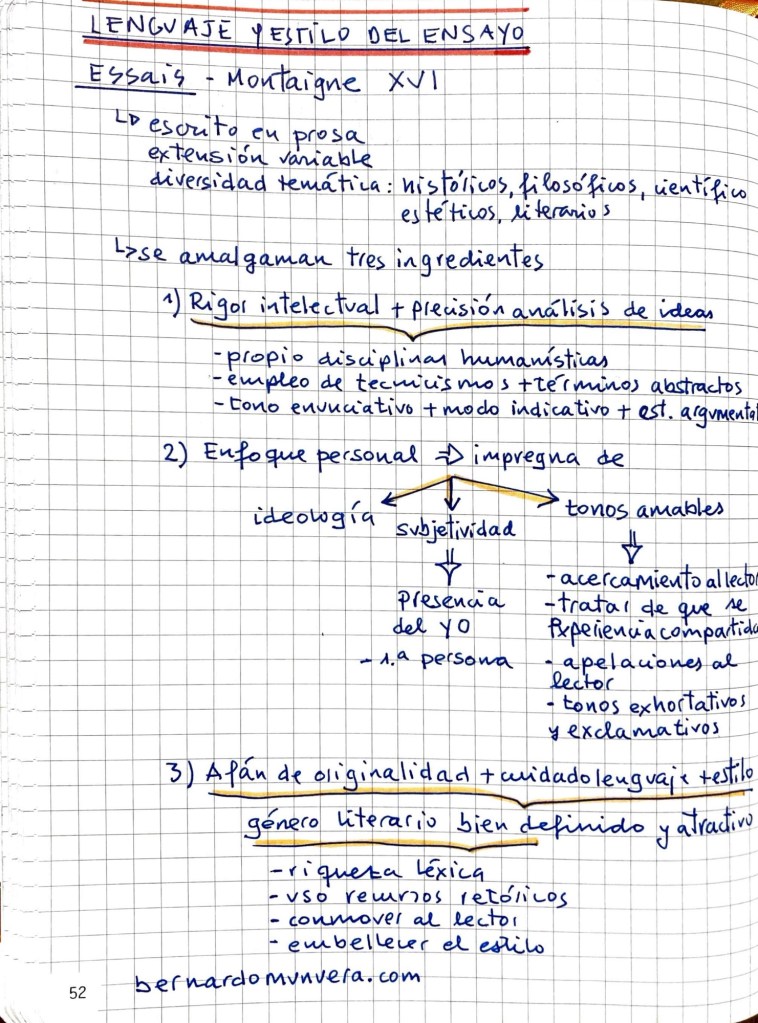 LENGUAJE Y ESTILO DEL ENSAYO
Essais - Montaigne XVI
↳ escrito en prosa
extensión variable
diversidad temática: históricos, filosóficos, científico
estéticos, literarios
↳ se amalgaman tres ingredientes
1) Rigor intelectual + precisión análisis de ideas
- propio disciplinas humanísticas
- empleo de tecnicismos + términos abstractos
- tono enunciativo + modo indicativo + est. argumental
2) Enfoque personal ⇒ impregna de
ideología
subjetividad
⇓
presencia
del YO
- 1.ª persona
tonos amables
⇓
- acercamiento al lector
- tratar de que se
experiencia compartida
- apelaciones al
lector
- tonos exhortativos
y exclamativos
3) Afán de originalidad + cuidado lenguaje + estilo
género literario bien definido y atractivo
- riqueza léxica
- uso recursos retóricos
- conmover al lector
- embellecer el estilo
52
bernardomunuera.com